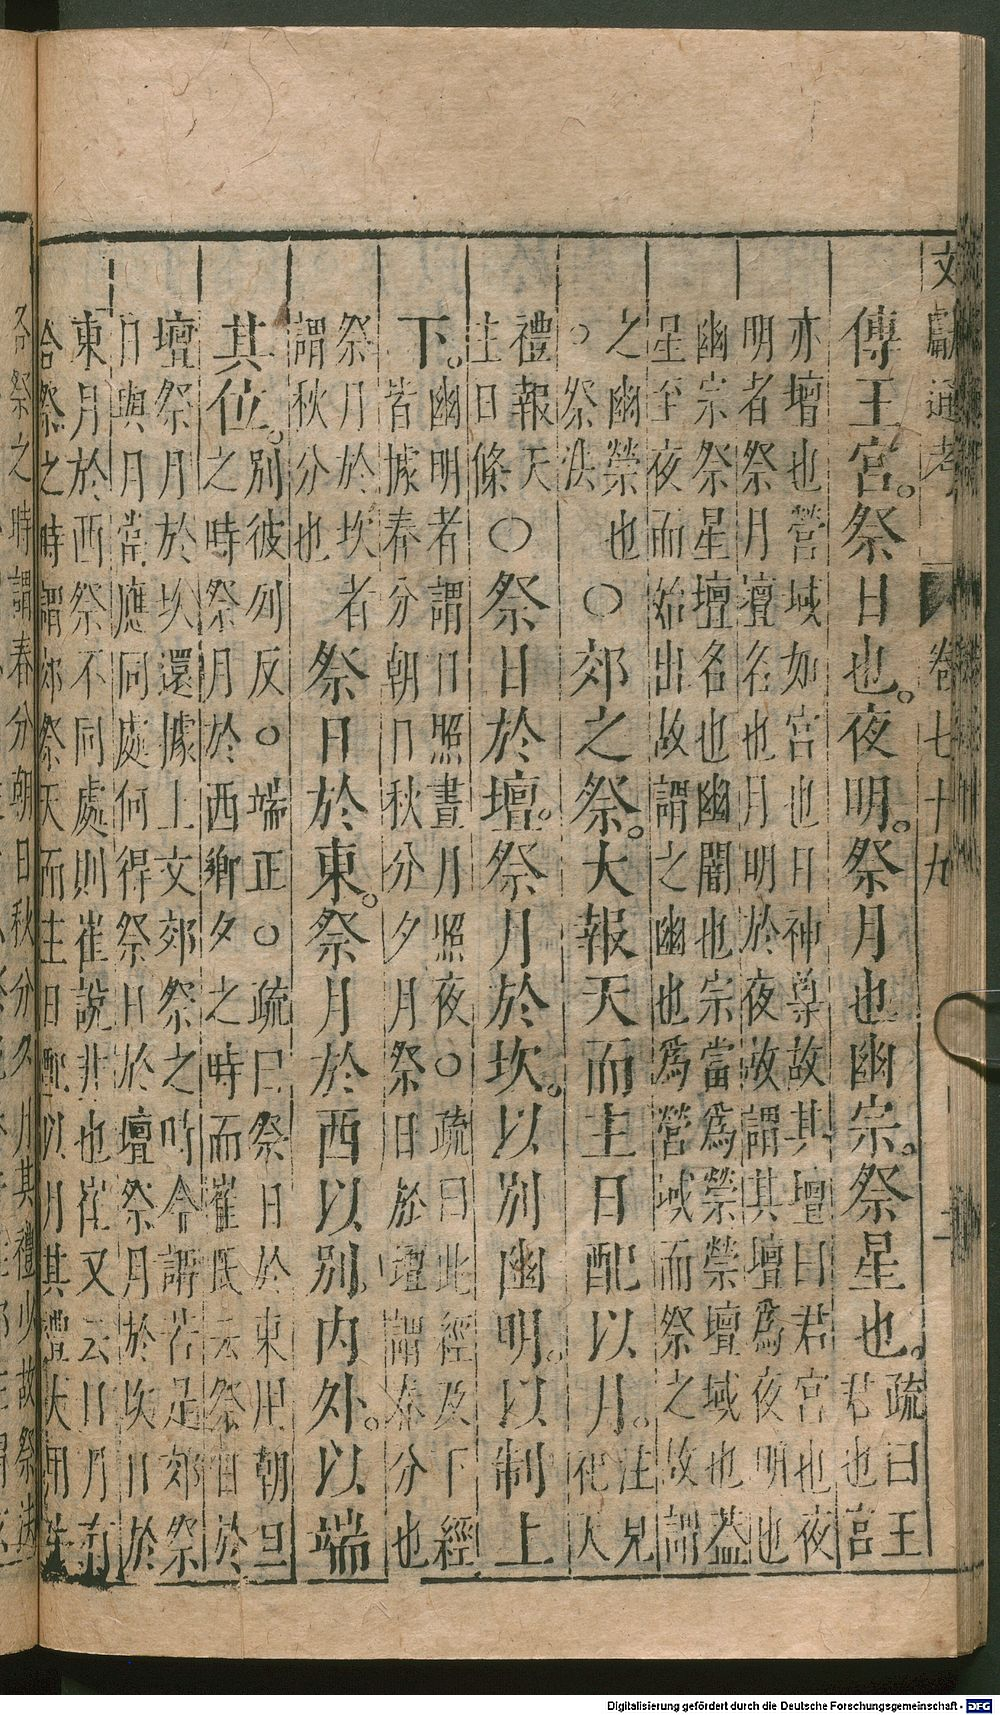 文獻通考 卷七十九
傳王宮。祭日也。夜明。祭月也幽宗。祭星也。疏曰王
君也宮
亦壇也營域如宮也日神尊故其壇曰君宮也夜
明者祭月壇名也月明於夜故謂其壇為夜明也
幽宗祭星壇名也幽闇也宗當為禜禜壇域也葢
星至夜而始出故謂之幽也為營域而祭之故謂
之幽禜也
○祭法
○郊之祭。大報天而主日配以月。注見
祀天
禮報天
主日條
○祭日於壇。祭月於坎。以別幽明。以制上
下。幽明者謂日照晝月照夜○疏曰此經及下經
皆據春分朝日秋分夕月祭日於壇謂春分也
祭月於坎者
謂秋分也
祭日於東。祭月於西以別內外。以端
其位。別彼列反○端正○疏曰祭日於東用朝旦
之時祭月於西鄉夕之時而崔氏云祭日於
壇祭月於坎還據上文郊祭之時今謂若是郊祭
日與月當應同處何得祭日於壇祭月於坎日於
東月於西祭不同處則崔說非也崔又云日月有
合祭之時謂郊祭天而主日配以月其禮大用牛
各祭之時謂春分朝日秋分夕月其禮少故祭法
Digitalisierung gefördert durch die Deutsche Forschungsgemeinschaft - DFG